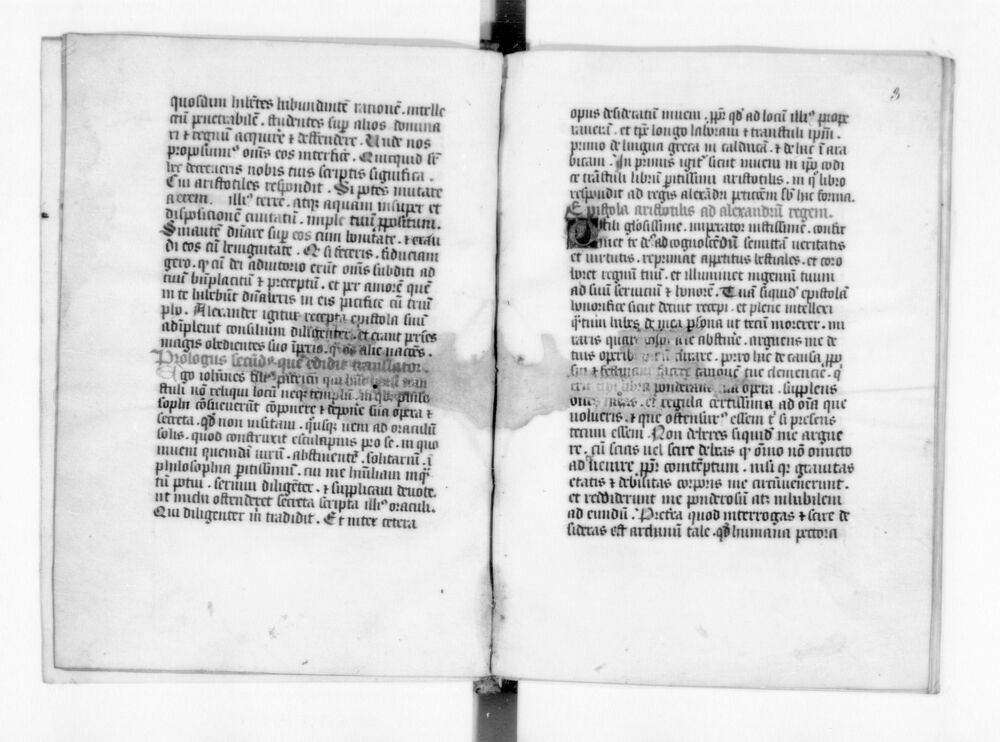 quosdam habētes habundātē rationē. intelle
ctū penetrabilē. studentes sup̄ alios domina
ri ⁊ regnū acquirē ⁊ deffendere. Unde nos
proposuimꝰ om̄s eos interficē. Quicquid sr̄
hec decreueris nobis tuis scriptis significa.
Cui aristotiles respondit. Si potes mutare
aerem. illiꝰ terre. atqꝫ aquam insuper et
disposicionē ciuitatū. imple tuū p̄positum.
Sinautē dn̄are sup̄ eos cum bonitate. ⁊ exau
di eos cū benignitate. Qꝫ si feceris. fiduciam
gero. qꝫ cū dei adiutorio erūt om̄s subditi ad
tuū bn̄placitū ⁊ preceptū. et per amorē quē
in te habebūt dn̄aberis in eis pacifice cū triū
pho. Alexander igitur recepta epistola suū
adīpleuit consilium diligenter. et erant perses
magis obedientes suo īperio. qꝫ oēs alie nacōes.
Prologus secūdꝰ quē edidit translator.
Ego ioh̄nes filiꝰ patricii qui hūc librū tran
stuli nō reliqui locū neqꝫ templū in quo philo
sophi cōsueuerūt cōponere ⁊ depone sua opera ⁊
secreta. qd̄ non uisitaui. qusqꝫ ueni ad oraculū
solis. quod construxit esculapius pro se. in quo
inueni quendā uirū. abstinentē. solitariū. ī
philosophia p̄itissimū. cui me humiliaui inqꝫ
tū potui. seruiui diligēter. ⁊ supplicaui deuote.
ut michi ostenderet secreta scripta illiꝰ oraculi.
Qui diligenter m̄ tradidit. Et inter cetera
3
opus desideratū inueni. ꝓpꝫ qd̄ ad locū illūꝰ prope
raueram. et tp̄e longo laboraui ⁊ transtuli ipm̄.
primo de lingua greca in caldaicā. ⁊ de hac ī ara
bicam. In primis igit̄ sicut inueni in ip̄o codi
ce trāstuli librū p̄itissimi aristotilis. in qꝰ libro
respondit ad regis alexādri peticiōem sb̄ hac forma.
Epistola aristotilis ad alexandrū regem.
O fili gl̄osissime. imperator iustissime. confir
met te dꝰ ad ognoscēdū semitā ueritatis
et uirtutis. reprimat appetitus bestiales. et coro
boret regnū tuū. et illuminet ingeniū tuum
ad suū seruiciū ⁊ honorē. Tuā siquidꝰ epistolā
honorifice sicut decuit recepi. et plene intellexi
qꝫtum habes de mea p̄sona ut tecū morarer. mi
raris quare me abstinē. arguens me de
tuis operibꝰ curare. porro hac de causa ꝓpo
sui ⁊ festinaui facere canonē tue clemencie. qꝰ
erit tibi libra ponderans opera. supplens
oīes meas. et regula certissima ad oīa que
nolueris. ⁊ que ostensurꝰ essem t̄ si presens
tecum essem. Non debes siquidꝰ me argue
re. cū scias uel scire debeas qꝫ om̄o nō omicto
ad uenire ꝓpꝫ comtēptum. nisi qꝛ grauitas
etatis ⁊ debilitas corporis me circūuenerunt.
et reddiderunt me ponderosū atꝫ inhabilem
ad eundū. Preterea quod interrogas ⁊ scire de
sideras est archanū tale. qd̄ humana pectora